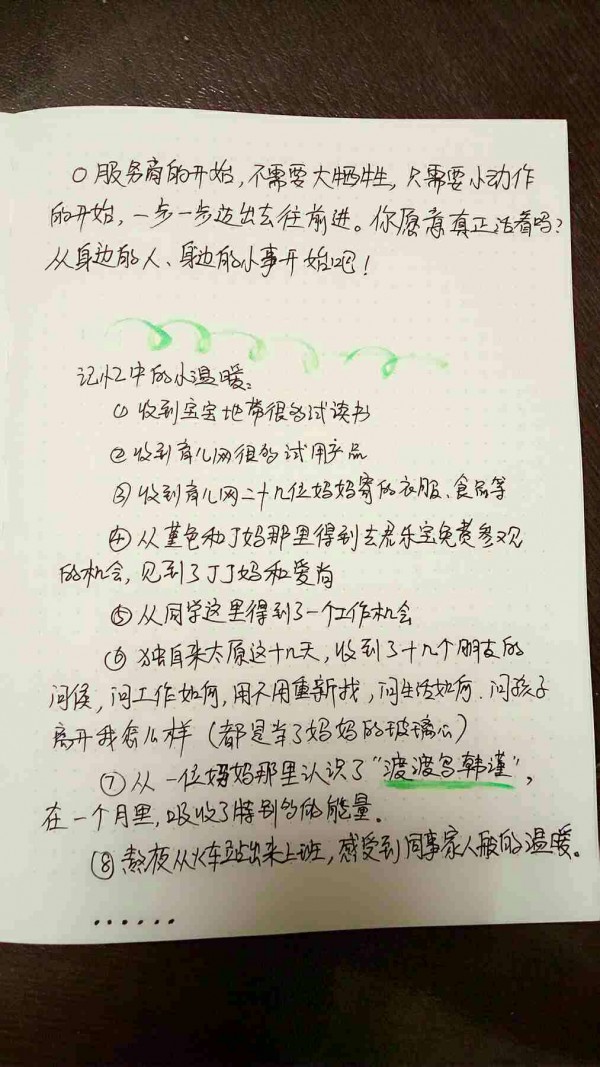 ○服务商的开始，不需要大牺牲，只需要小动作
的开始，一步一步迈出去往前进。你愿意真正活着吗？
从身边的人、身边的小事开始吧！
记忆中的小温暖：
①收到宝宝地带很多试读书
②收到育儿网很多试用产品
③收到育儿网二十几位妈妈寄的衣服、食品等
④从堇色和丁妈那里得到去君乐宝免费参观
的机会，见到了丁丁妈和爱尚
⑤从同学这里得到了一个工作机会
⑥独自来太原这十几天，收到了十几个朋友的
问候，问工作如何，用不用重新找，问生活如何．问孩子
离开我怎么样（都是当了妈妈的玻璃心）
⑦从一位妈妈那里认识了“渡渡鸟韩瑾”，
在一个月里，吸收了特别多的能量。
⑧熬夜从火车站出来上班，感受到同事家人般的温暖。
……